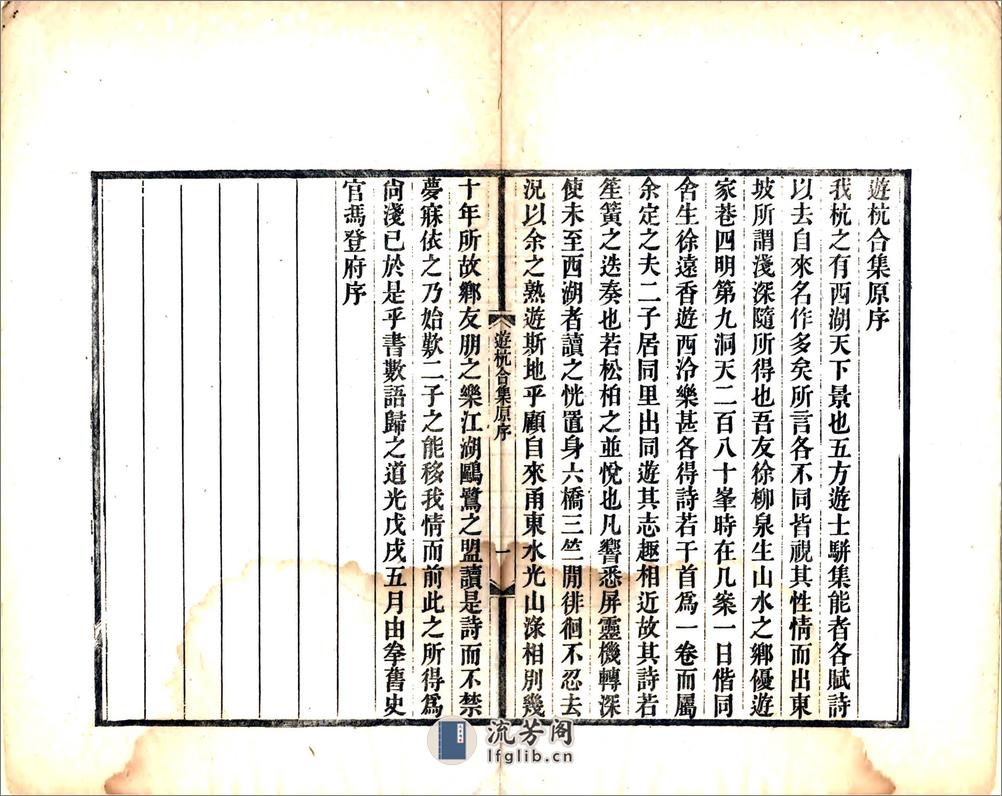 遊杭合集原序
我杭之有西湖天下景也五方遊士駢集能者各賦詩
以去自來名作多矣所言各不同皆視其性情而出東
坡所謂淺深隨所得也吾友徐柳泉生山水之鄉優遊
家巷四明第九洞天二百八十峯時在几案一日偕同
舍生徐遠香遊西泠樂甚各得詩若干首爲一卷而屬
余定之夫二子居同里出同遊其志趣相近故其詩若
笙簧之迭奏也若松柏之並悅也凡響悉屏靈機轉深
使未至西湖者讀之恍置身六橋三竺閒徘徊不忍去
況以余之熟遊斯地乎顧自來甬東水光山淥相別幾
遊杭合集原序
一
十年所故鄉友朋之樂江湖鷗鷺之盟讀是詩而不禁
夢寐依之乃始歎二子之能移我情而前此之所得爲
尙淺已於是乎書數語歸之道光戊戌五月由拳舊史
官馮登府序
流芳阁
lfglib.cn